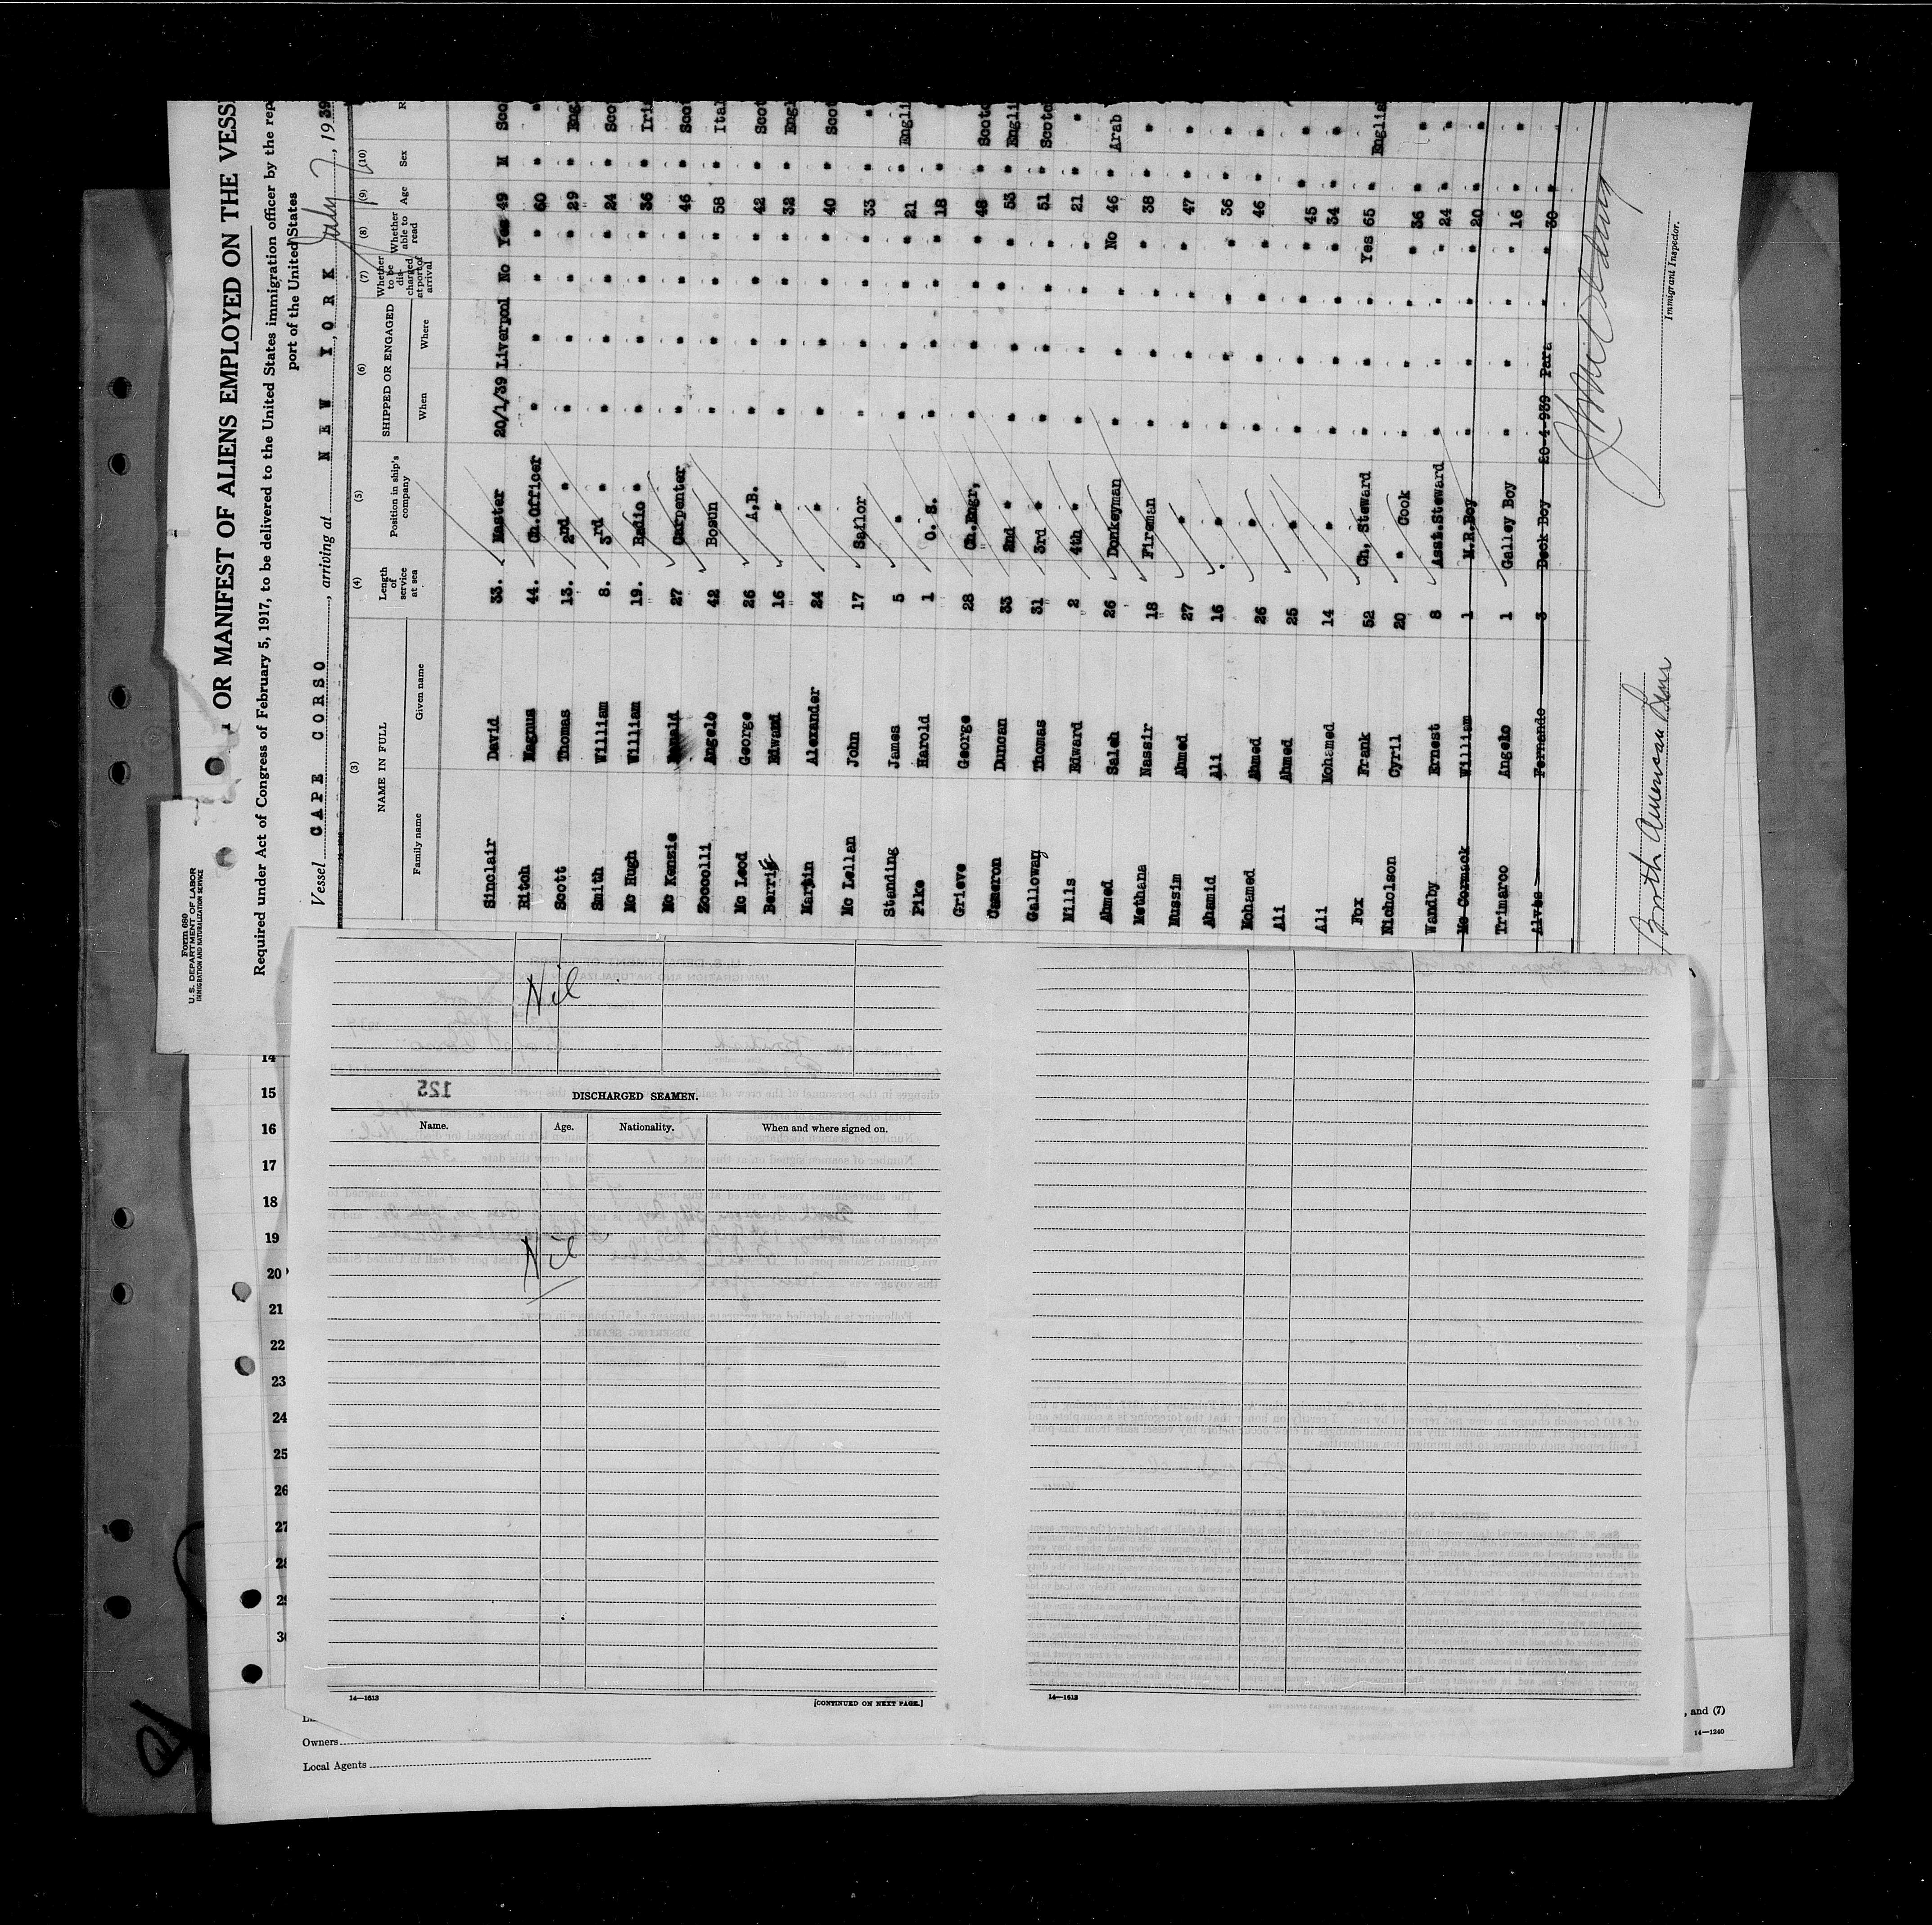 Form 680
U. S. DEPARTMENT OF LABOR
IMMIGRATION AND NATURALIZATION SERVICE
OR MANIFEST OF ALIENS EMPLOYED ON THE VESS
Required under Act of Congress of February 5, 1917, to be delivered to the United States immigration officer by the rep
port of the United States
Vessel CAPE CORSO, arriving at NEW YORK, July 7, 1939
(3) (4) (5) (6) (7) (8) (9) (10)
NAME IN FULL Length of service at sea Position in ship's company SHIPPED OR ENGAGED Whether to be discharged at port of arrival Whether able to read Age Sex R
Family name Given name When Where
Sinclair David 33. Master 20/1/39 Liverpool No Yes 49 M Sco
Ritch Magnus 44. Ch.Officer " " " " 60 " "
Scott Thomas 13. 2nd " " " " " 29 " Eng
Smith William 8. 3rd " " " " " 24 " Sco
Mc Hugh William 19. Radio " " " " " 36 " Iri
Mc Kenzie 27 Carpenter " " " " 46 " Sco
Zoccolli Angelo 42 Bosun " " " " 58 " Ital
Mc Leod George 26 A,B. " " " " 42 " Scot
Berri Edward 16 " " " " " 32 " Engl
Martin Alexander 24 " " " " " 40 " Scot
Mc Lellan John 17 Sailor " " " " 33 " "
Standing James 5 " " " " " 21 " Engli
Pike Harold 1 O. S. " " " " 18 " "
Grieve George 28 Ch.Engr, " " " " 48 " Scotc
Cameron Duncan 33 2nd " " " " " 53 " Engli
Galloway Thomas 31 3rd " " " " " 51 " Scotc
Mills Edward 2 4th " " " " " 21 " "
Ahmed Saleh 26 Donkeyman " " " No 46 " Arab
Methana Nassir 18 Fireman " " " " 38 " "
Mussim Ahmed 27 " " " " " 47 " "
Ahamid Ali 16 " " " " " 36 " "
Mohamed Ahmed 26 " " " " " 46 " "
Ali Ahmed 25 " " " " " 45 " "
Ali Mohamed 14 " " " " " 34 " "
Fox Frank 52 Ch, Steward " " " Yes 65 " Englis
Nicholson Cyril 20 " Cook " " " " 36 " "
Wandby Ernest 8 Asst.Steward " " " " 24 " "
Mc Cormack William 1 M.R.Boy " " " " 20 " "
Trimarco Angelo 1 Galley Boy " " " " 16 " "
Alves Fernando 3 Deck Boy 20-4-939 Para " " 30 "
Booth American
Immigrant Inspector.
Nil
125
DISCHARGED SEAMEN.
Name. Age. Nationality. When and where signed on.
Nil
14—1613
[CONTINUED ON NEXT PAGE.]
14—1613
14
15
16
17
18
19
20
21
22
23
24
25
26
27
28
29
Owners
Local Agents
, and (7)
14—1240